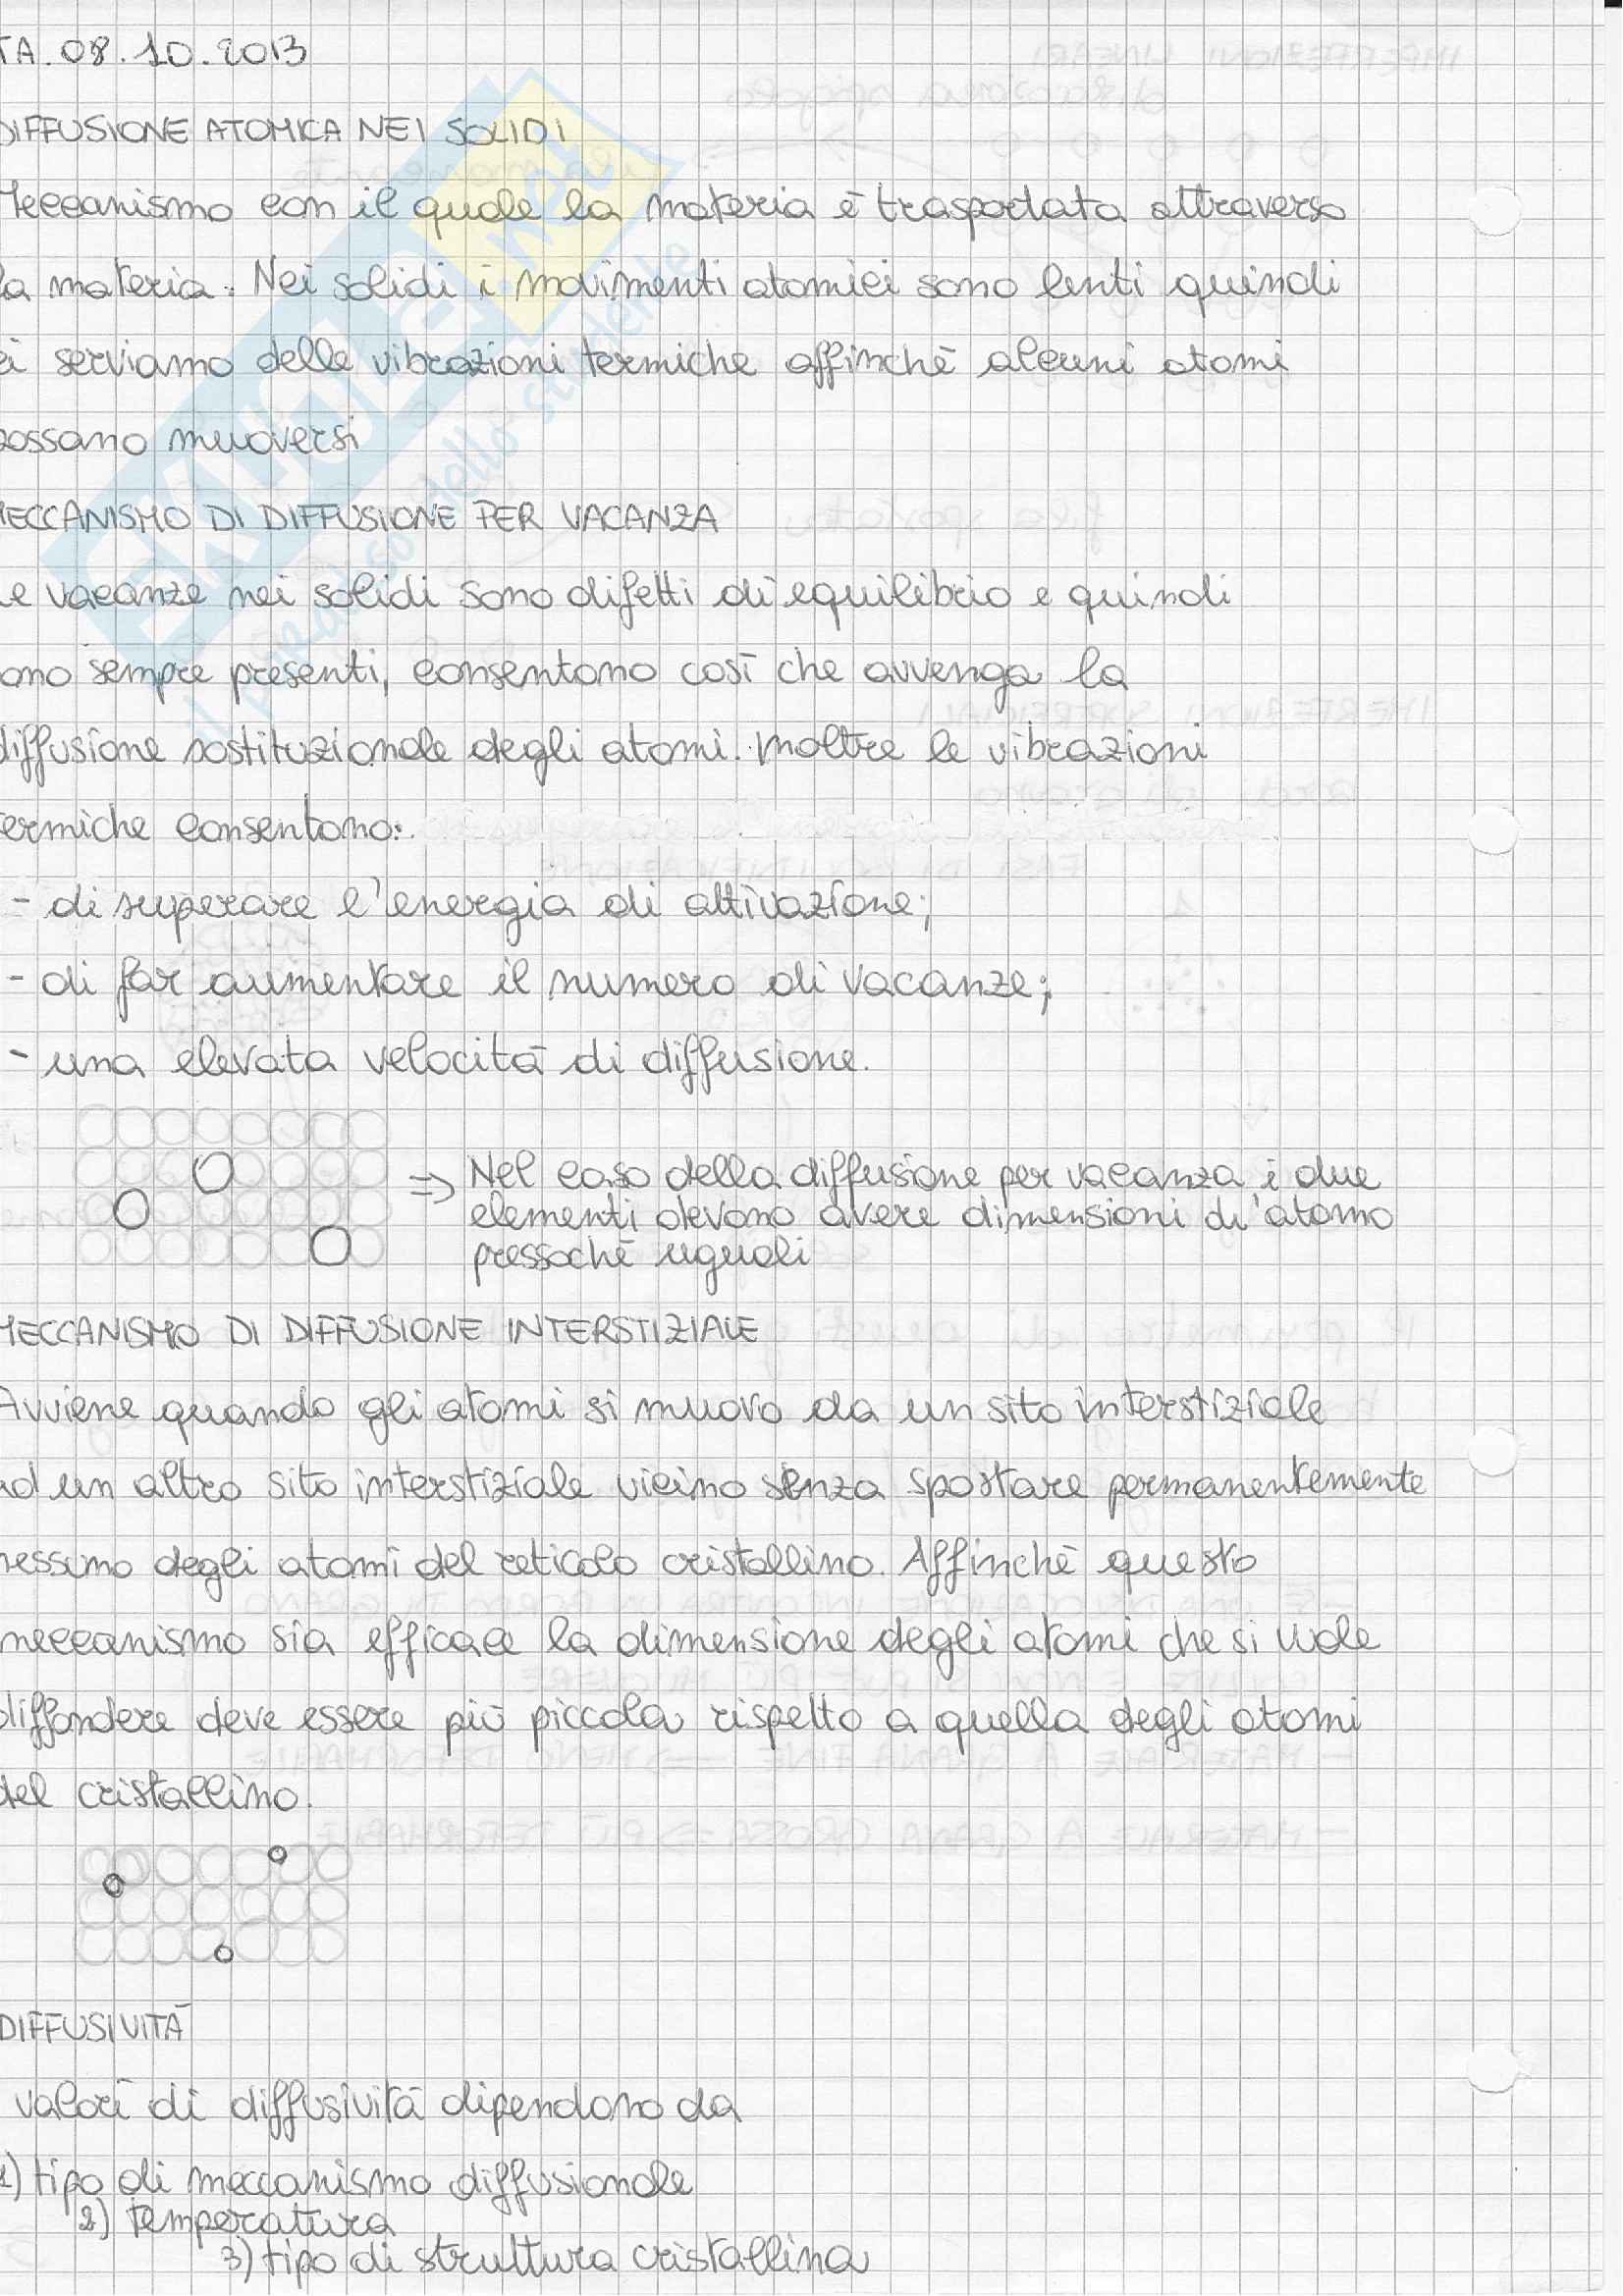 TA. 08.10.2013
DIFFUSIONE ATOMICA NEI SOLIDI
Meccanismo con il quale la materia è trasportata attraverso
la materia. Nei solidi i movimenti atomici sono lenti quindi
ci serviamo delle vibrazioni termiche affinchè alcuni atomi
possano muoversi
MECCANISMO DI DIFFUSIONE PER VACANZA
Le vacanze nei solidi sono difetti di equilibrio e quindi
ono sempre presenti, consentono così che avvenga la
diffusione sostituzionale degli atomi. Inoltre le vibrazioni
ermiche consentono:
- di superare l'energia di attivazione;
- di far aumentare il numero di vacanze;
- una elevata velocità di diffusione.
=> Nel caso della diffusione per vacanza i due
elementi devono avere dimensioni d'atomo
pressochè uguali
MECCANISMO DI DIFFUSIONE INTERSTIZIALE
Avviene quando gli atomi si muovo da un sito interstiziale
ad un altro sito interstiziale vicino senza spostare permanentemente
nessuno degli atomi del reticolo cristallino. Affinchè questo
meccanismo sia efficace la dimensione degli atomi che si vuole
diffondere deve essere più piccola rispetto a quella degli atomi
del cristallino.
DIFFUSIVITÀ
valori di diffusività dipendono da
1) tipo di meccanismo diffusionale
2) temperatura
3) tipo di struttura cristallina